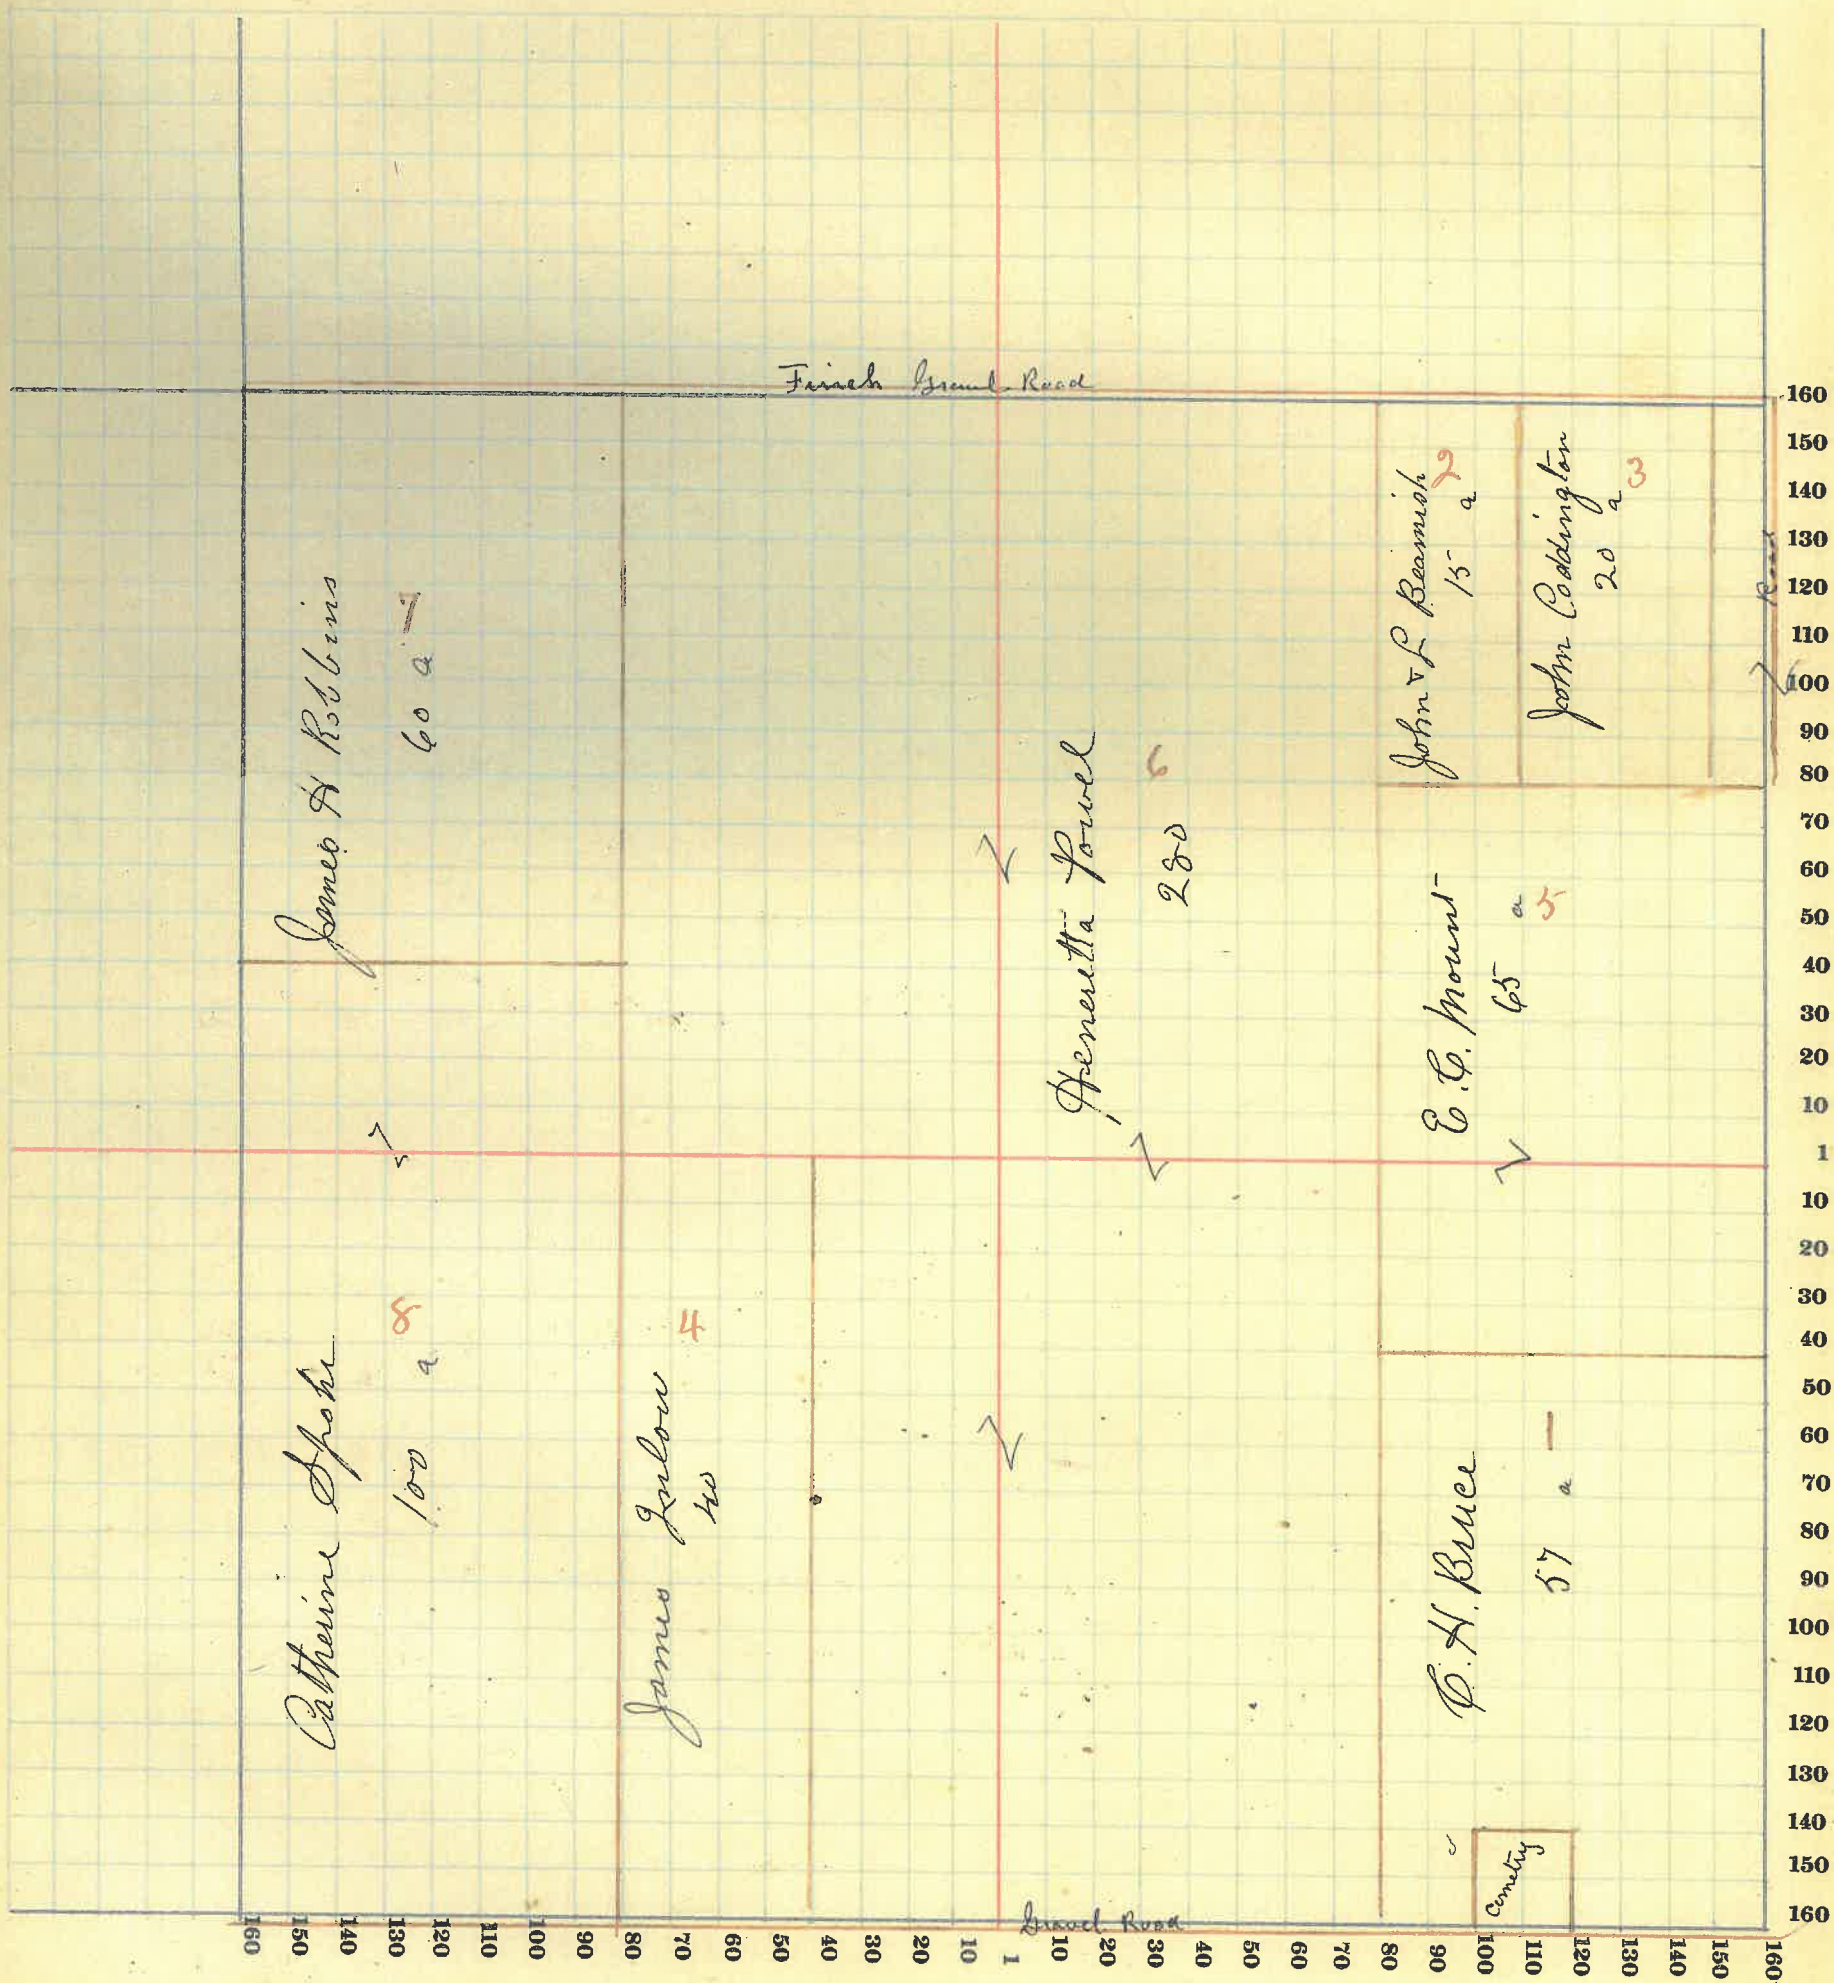 Finch Gravel Road
James H Robbins
60 a 7
John & L Beamish 2
15 a
John Coddington 3
20 a
Road
Heneretta Powel 6
280
E. C. Mount
65 a 5
Catherine Spohr
100 a 8
James Inlow 4
40
C. H. Bruce
57 a
Cemetry
Gravel Road
160
150
140
130
120
110
100
90
80
70
60
50
40
30
20
10
1
10
20
30
40
50
60
70
80
90
100
110
120
130
140
150
160
160 150 140 130 120 110 100 90 80 70 60 50 40 30 20 10 1 10 20 30 40 50 60 70 80 90 100 110 120 130 140 150 160